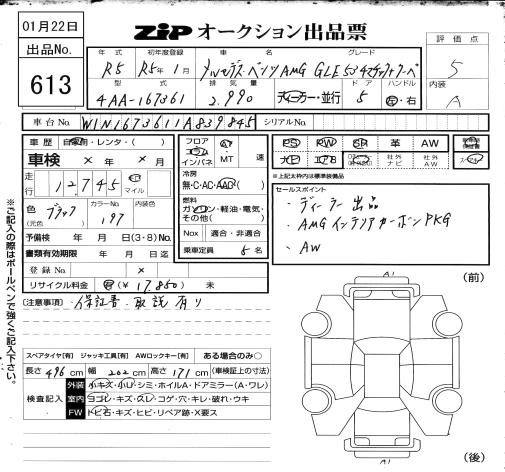 01月22日
出品No.
613
ZiPオークション出品票
年式 初年度登録 車名 グレード
R5 R5年1月 メルセデスベンツAMG GLE53 4マチッククーペ
型式 排気量 ドア ハンドル
4AA-167361 2.990 ディーラー・並行 5 左・右
評価点
5
内装
A
車台No. W1N1673611A839845 シリアルNo.
車歴 自家用・レンタ・( )
車検 × 年 × 月
走行 12,745 km マイル
色 ブラック (元色) カラーNo. 197 内装色
予備検 年 月 日(3・8)No.
書類有効期限 年 月 日迄
登録No. ×
リサイクル料金 有(¥17,850) 未
フロア コラム インパネ AT MT 速
冷房 無・C・AC・AAC
燃料 ガソリン・軽油・電気・その他( )
Nox 適合・非適合
乗車定員 5名
PS PW SR 革 AW
ナビ エアB 社外ナビ 社外AW
※上記太枠内は標準装備品
セールスポイント
・ディーラー出品
・AMGインテリアカーボンPKG
・AW
(注意事項) 保証書・取説有り
スペアタイヤ[有] ジャッキ工具[有] AWロックキー[有] ある場合のみ○
長さ 496 cm 幅 202 cm 高さ 171 cm (車検証上の寸法)
検査記入
外装 小キズ・小U・シミ・ホイルA・ドアミラー(A・ワレ)
室内 ヨゴレ・キズ・スレ・コゲ・穴・キレ・破れ・ウキ
FW トビ石・キズ・ヒビ・リペア跡・X要ス
※ご記入の際はボールペンで強くご記入下さい。
A1
(前)
A1
(後)